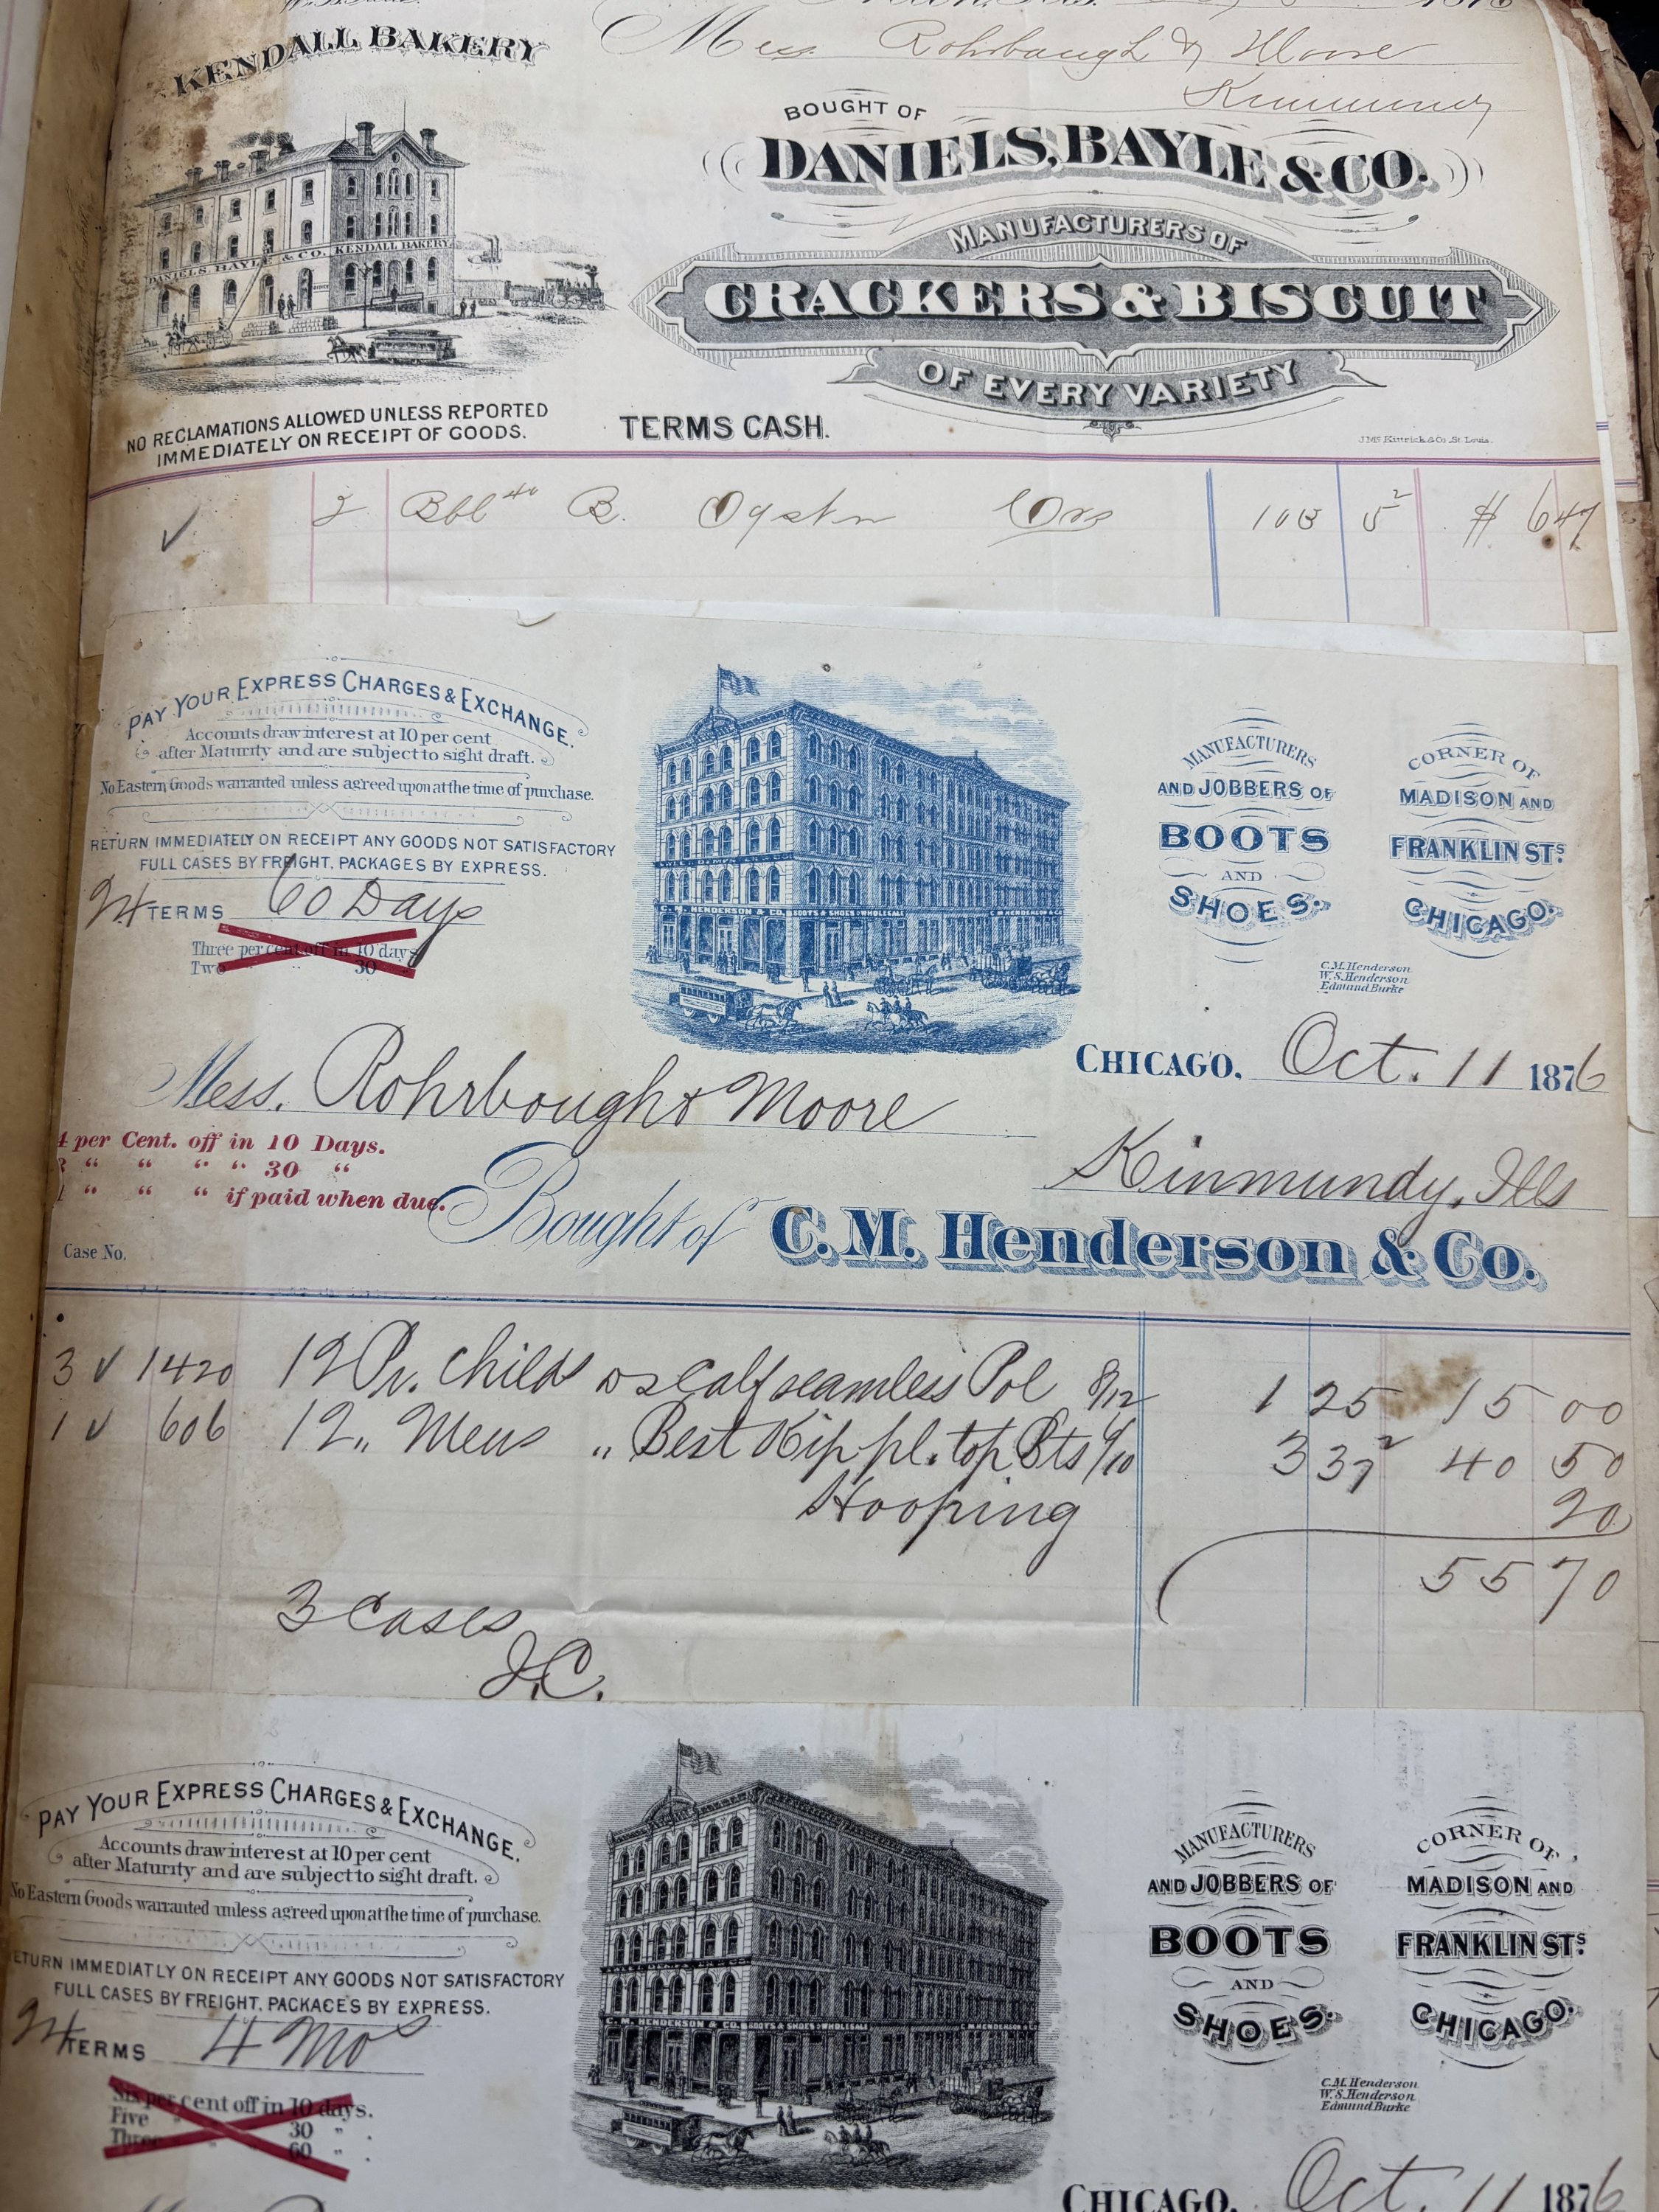 KENDALL BAKERY
1876
Mess Rohrbaugh & Moore
Kinmundy
BOUGHT OF
DANIELS, BAYLE & CO.
MANUFACTURERS OF
CRACKERS & BISCUIT
OF EVERY VARIETY
DANIELS, BAYLE & CO. KENDALL BAKERY
NO RECLAMATIONS ALLOWED UNLESS REPORTED
IMMEDIATELY ON RECEIPT OF GOODS.
TERMS CASH.
J. Mc Kittrick & Co., St. Louis.
2 Bbl B. Oyster 103 $ 647
PAY YOUR EXPRESS CHARGES & EXCHANGE.
Accounts draw interest at 10 per cent
after Maturity and are subject to sight draft.
No Eastern Goods warranted unless agreed upon at the time of purchase.
RETURN IMMEDIATELY ON RECEIPT ANY GOODS NOT SATISFACTORY
FULL CASES BY FREIGHT, PACKAGES BY EXPRESS.
TERMS 60 Days
Three per cent off in 10 days
Two " " 30
C. M. HENDERSON & CO. BOOTS & SHOES WHOLESALE C M HENDERSON & CO
MANUFACTURERS
AND JOBBERS OF
BOOTS
AND
SHOES.
CORNER OF
MADISON AND
FRANKLIN STS.
CHICAGO.
C.M. Henderson
W.S. Henderson
Edmund Burke
CHICAGO, Oct. 11 1876
Mess. Rohrbough & Moore
Kinmundy, Ills
4 per Cent. off in 10 Days.
" " " " 30 "
" " " if paid when due.
Bought of C. M. Henderson & Co.
Case No.
3 √ 1420 12 Pr. Childs calf seamless Pol 8/12 1 25 15 00
1 √ 606 12 " Mens " Best Kip pl. top Bts 6/10 3 37 2 40 50
Hooping 20
55 70
3 Cases
J.C.
PAY YOUR EXPRESS CHARGES & EXCHANGE.
Accounts draw interest at 10 per cent
after Maturity and are subject to sight draft.
No Eastern Goods warranted unless agreed upon at the time of purchase.
ETURN IMMEDIATLY ON RECEIPT ANY GOODS NOT SATISFACTORY
FULL CASES BY FREIGHT, PACKAGES BY EXPRESS.
TERMS 4 Mos
Six per cent off in 10 days.
Five " 30 "
Three " 60 "
C. M. HENDERSON & CO. BOOTS & SHOES WHOLESALE C M HENDERSON & CO
MANUFACTURERS
AND JOBBERS OF
BOOTS
AND
SHOES.
CORNER OF
MADISON AND
FRANKLIN STS.
CHICAGO.
C.M. Henderson
W.S. Henderson
Edmund Burke
CHICAGO, Oct. 11 1876